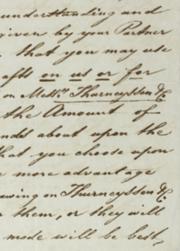 understanding and
given by your Partner
that you may use
afts on us or for
on Mess.rs Thurneyssen &C
the Amount of
nds about upon the
that you choose upon
more advantage
awing on Thurneyssen &C.
them, or they will
mode will be best,